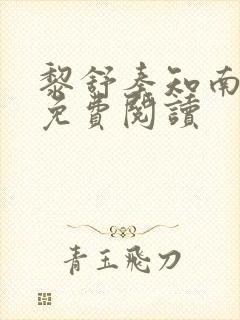 黎舒秦知南
免費閱讀
青玉飛刀